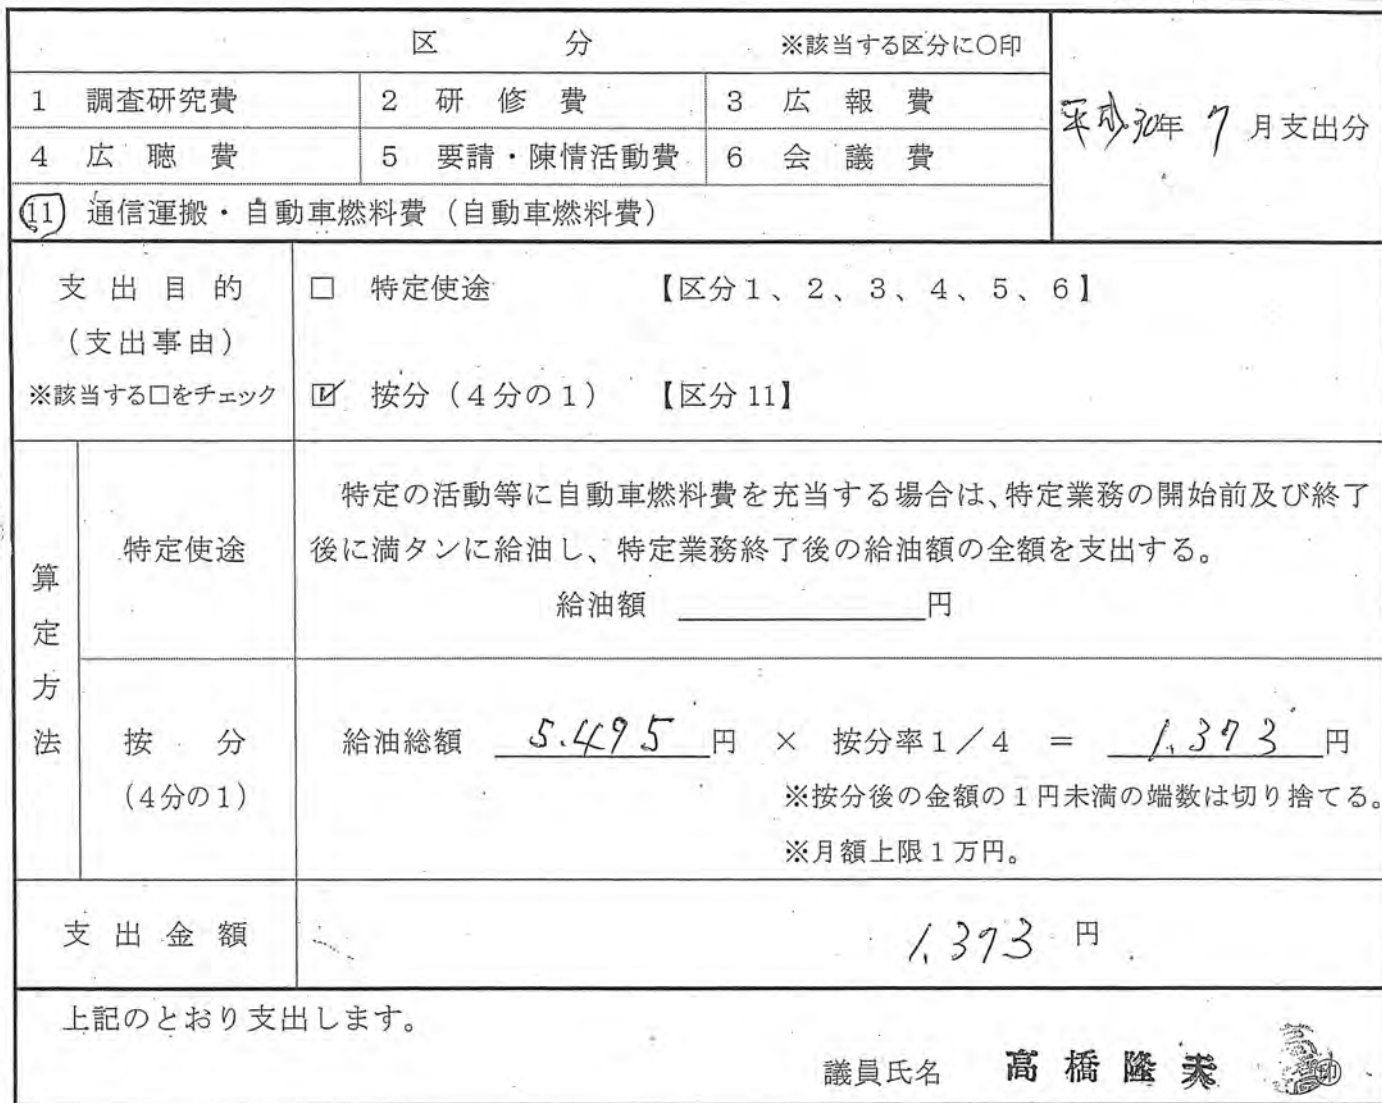 区　分　※該当する区分に○印
1　調査研究費　2　研修費　3　広報費
平成30年7月支出分
4　広聴費　5　要請・陳情活動費　6　会議費
11　通信運搬・自動車燃料費（自動車燃料費）
支出目的
（支出事由）
※該当する□をチェック
□　特定使途　【区分1、2、3、4、5、6】
☑　按分（4分の1）　【区分11】
算定方法
特定使途
特定の活動等に自動車燃料費を充当する場合は、特定業務の開始前及び終了
後に満タンに給油し、特定業務終了後の給油額の全額を支出する。
給油額　円
按分
（4分の1）
給油総額　5.495円　×　按分率1／4　＝　1.373円
※按分後の金額の1円未満の端数は切り捨てる。
※月額上限1万円。
支出金額　1.373円
上記のとおり支出します。
議員氏名　高橋隆夫　印